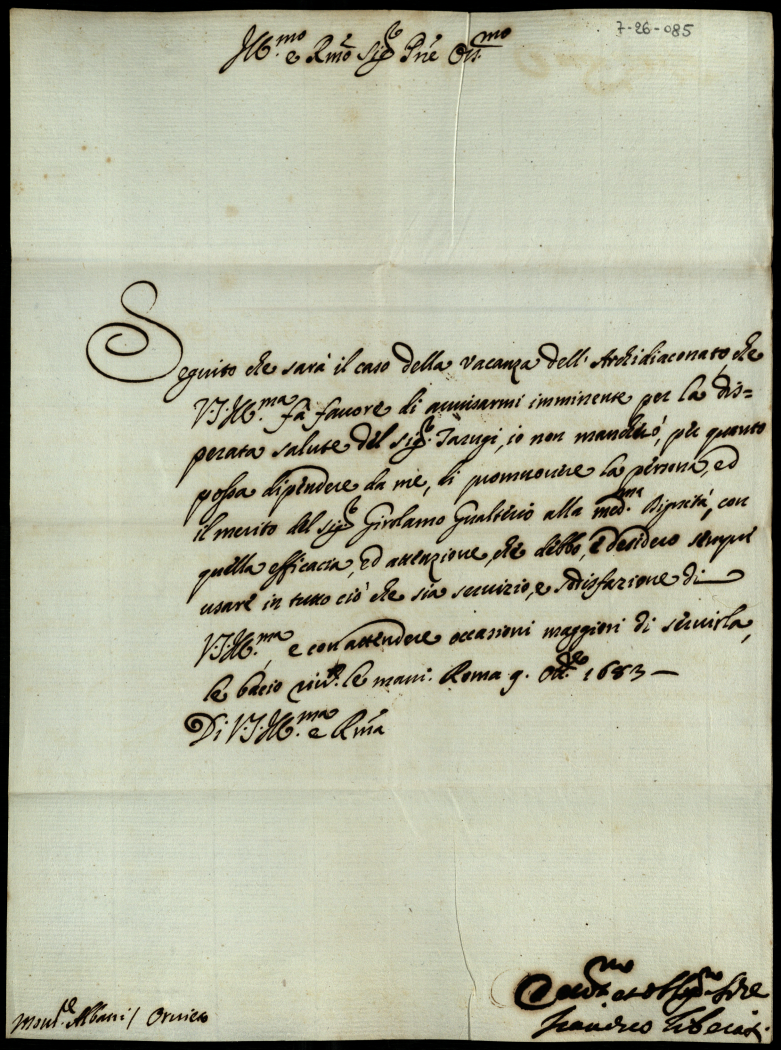 7-26-085
Ill.mo e Rmõ Sig.r Prẽ Oss.mo
Seguito che sarà il caso della vacanza dell' Archidiaconato, che
V.S. Ill.ma fà fauore di auuisarmi imminente per la dis=
perata salute del sig.r Tarugi, io non mancherò, per quanto
possa dipendere da me, di promuouere la persona, ed
il merito del sig.r Girolamo Gualterio alla med.ma Dignità, con
quella efficacia, ed attenzione, che debbo, e desidero sempre
usare in tutto ciò che sia seruizio, e sodisfazione di
V.S. Ill.ma, e con attendere occasioni maggiori di seruirla,
le bacio riu.te le mani. Roma 9. Ott.re 1683 —
Di V.S. Ill.ma e Rmã
Mons.re Albani / Oruieto
Deuot.mo et obblig.mo Sre
Francesco